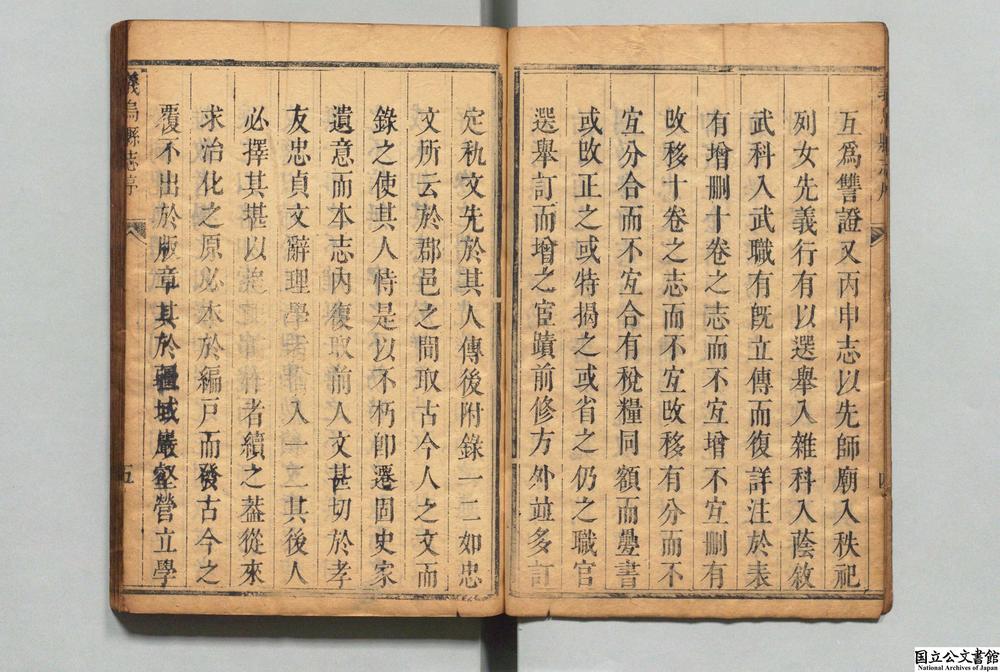 互爲讐證又丙申志以先師廟入秩祀
列女先義行有以選舉入雜科入蔭敘
武科入武職有旣立傳而復詳注於表
有增刪十卷之志而不宐增不宐刪有
攺移十卷之志而不宐攺移有分而不
宐分合而不宐合有稅糧同額而疊書
或攺正之或特揭之或省之仍之職官
選舉訂而增之宦蹟前修方外並多訂
定秇文先於其人傳後附錄一二如忠
文所云於郡邑之間取古今人之文而
錄之使其人恃是以不朽卽遷固史家
遺意而本志內復取前人文甚切於孝
友忠貞文辭理學者入一二其後人
必擇其堪以者續之葢從來
求治化之原必本於編戸而發古今之
覆不出於版章其於疆域巖壑營立學
義烏縣志序
五
国立公文書館
National Archives of Japan